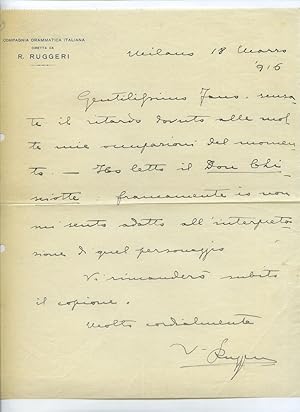 COMPAGNIA DRAMMATICA ITALIANA
DIRETTA DA
R. RUGGERI
Milano 18 Marzo
916
Gentilissimo scusa-
te il ritardo dovuto alle mol-
te mie occupazioni del momen-
to. — Ho letto il Don Chi-
sciotte: francamente io non
mi sento adatto all'interpreta-
zione di quel personaggio
Vi rimanderò subito
il copione.
Molto cordialmente
V- Ruggeri